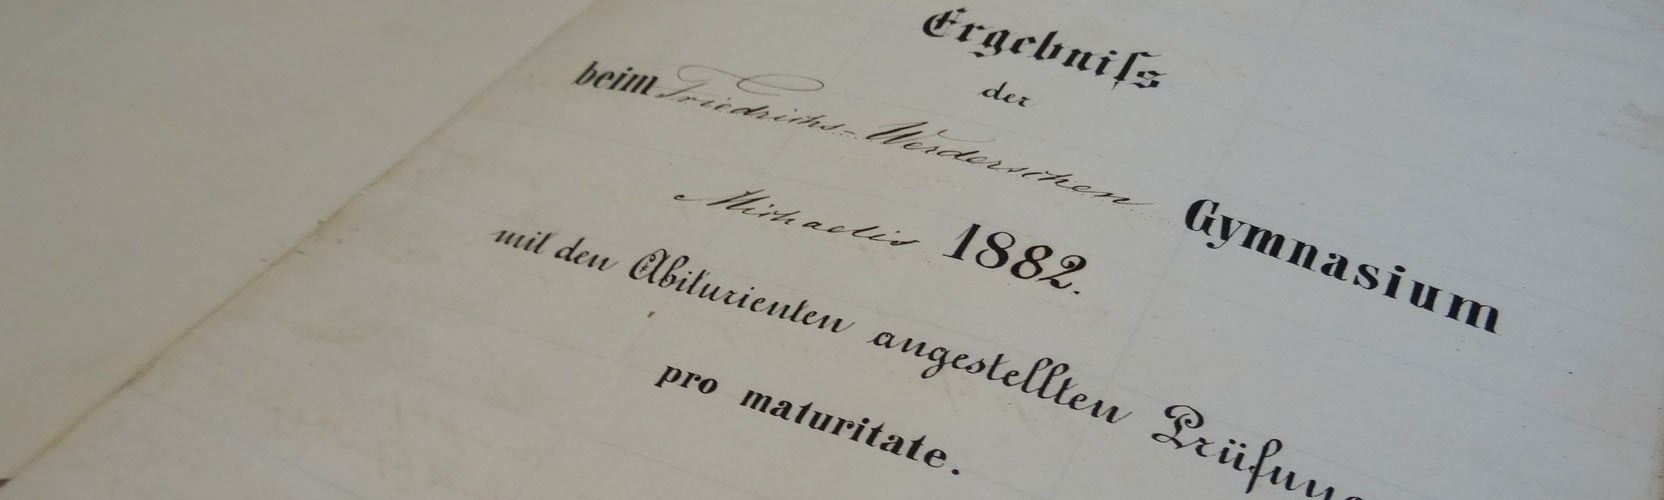 Ergebniſs
der
beim Friedrichs-Werderschen Gymnasium
Michaelis 1882.
mit den Abiturienten angestellten Prüfung
pro maturitate.